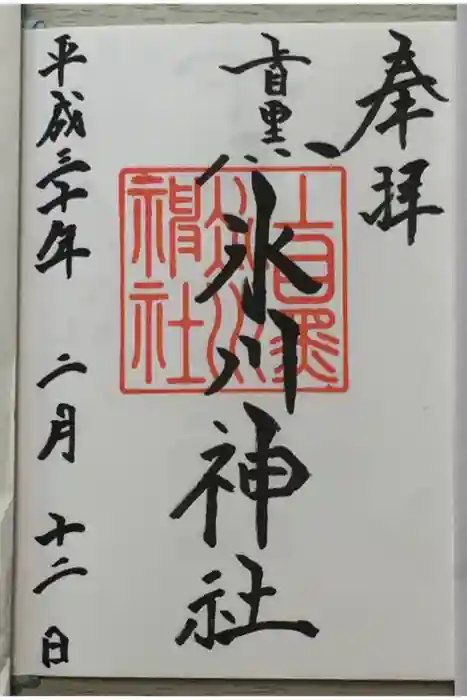 奉拝
上目黒
氷川神社
平成三十年 二月 十二日
上目黒
氷川
神社